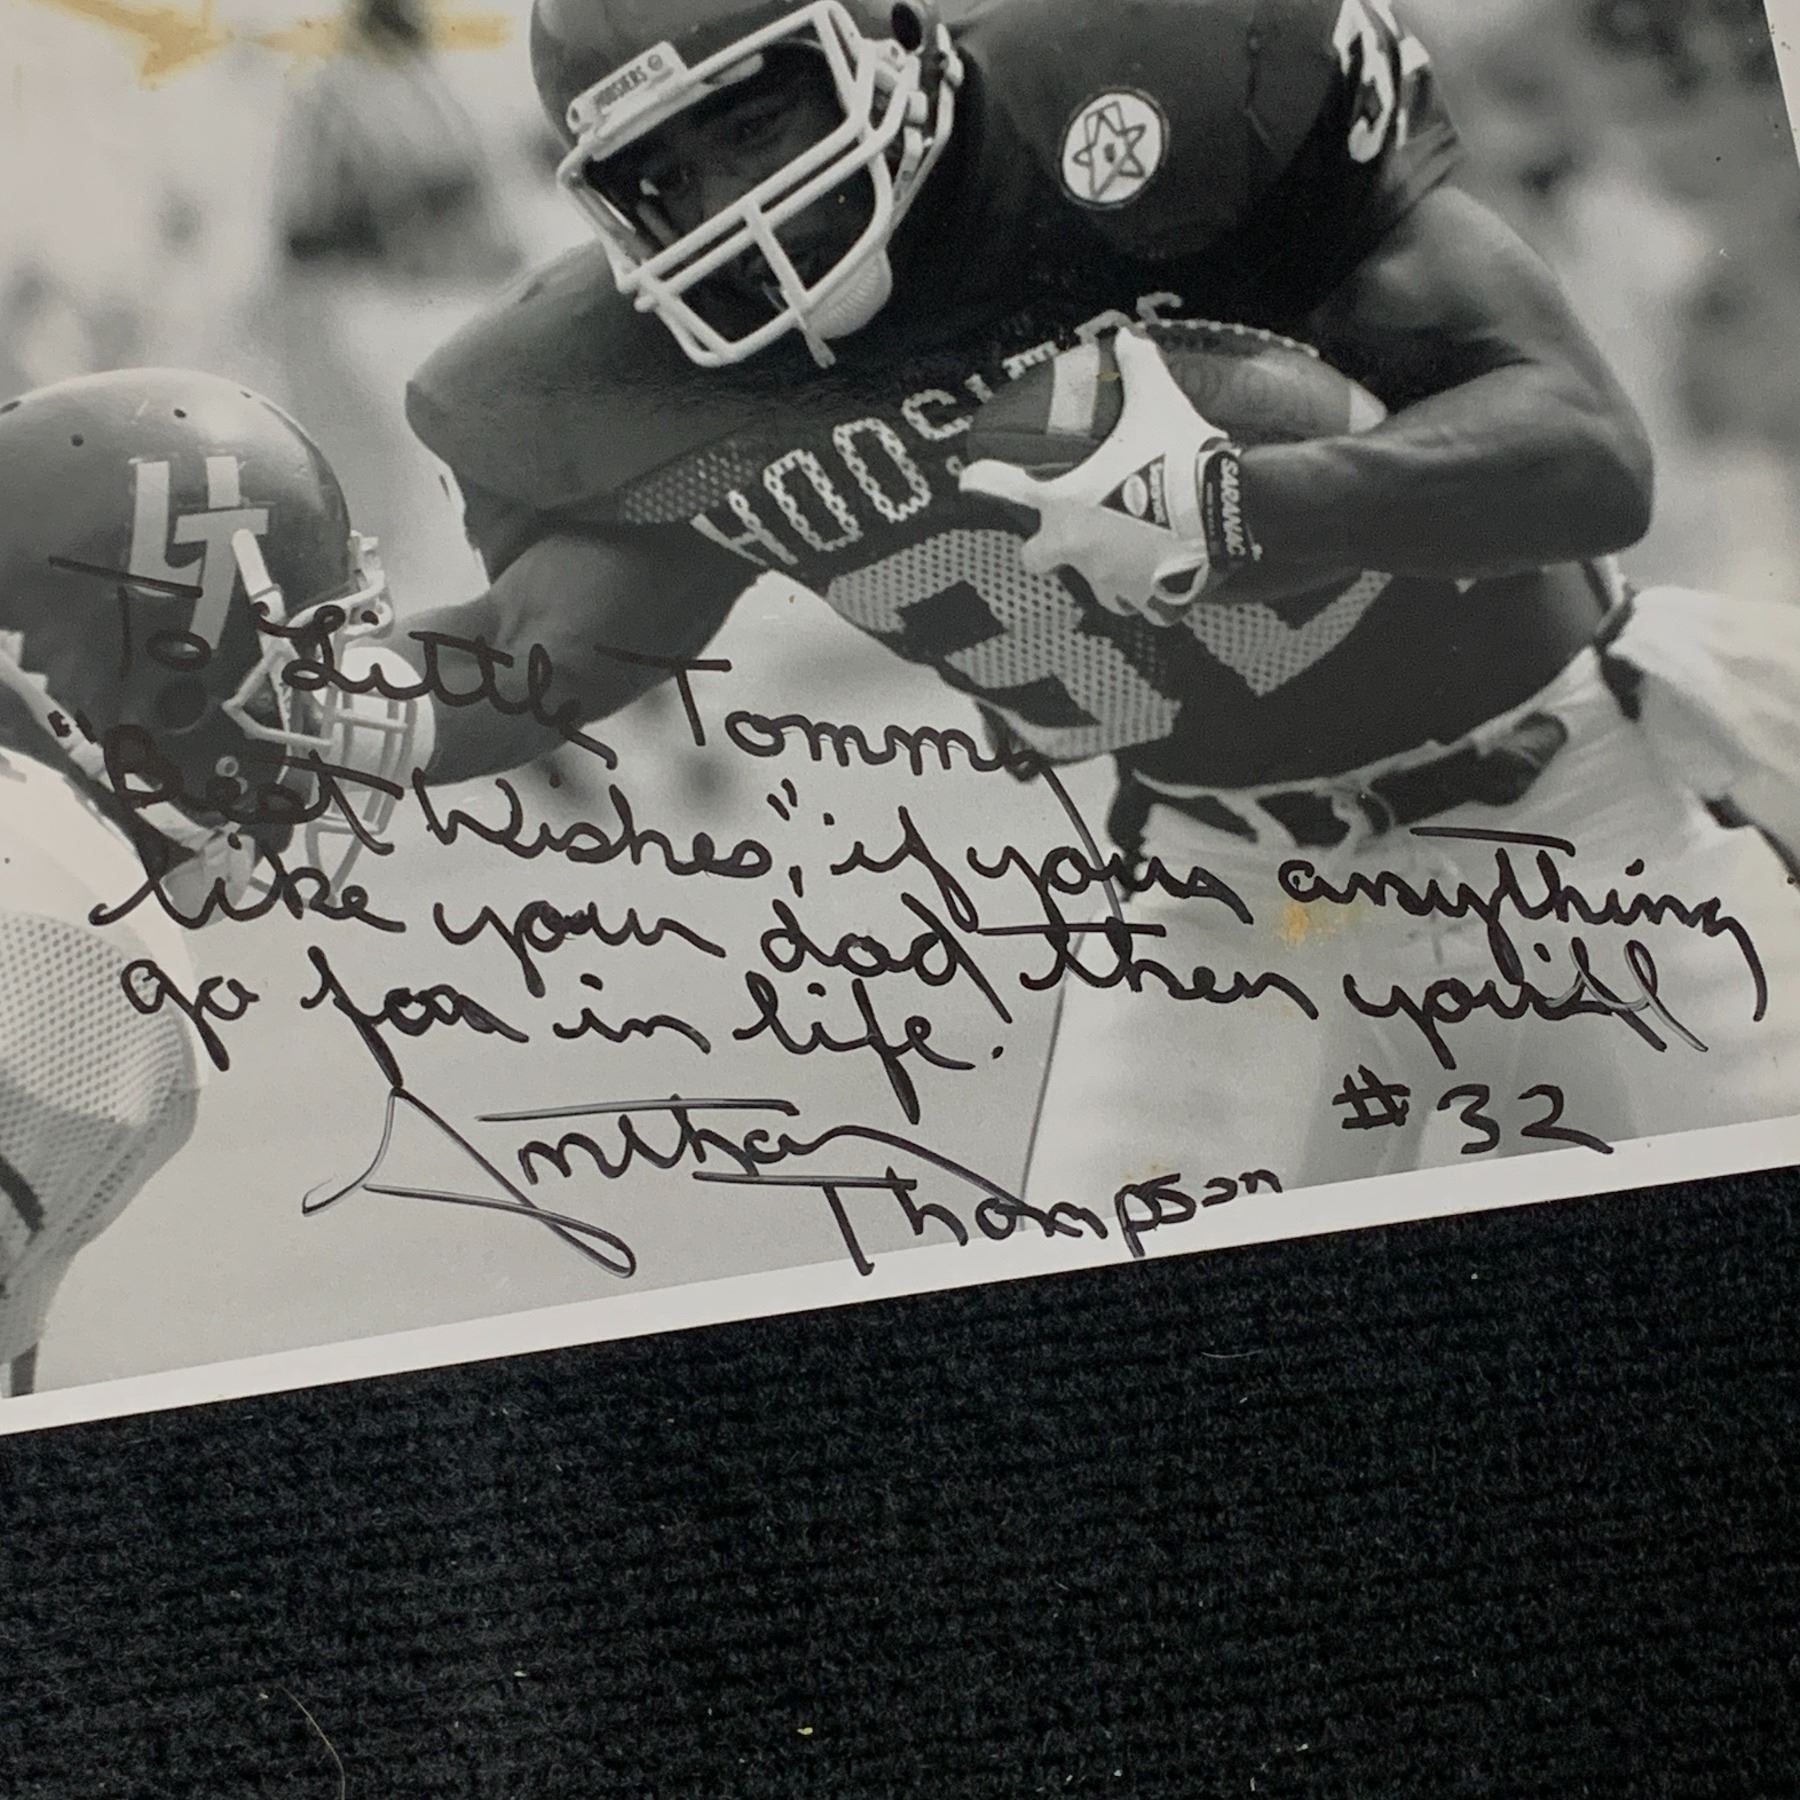 HOOSIERS
3
HOOSIERS
SARANAC
32
To "Little Tommy
Best Wishes," if your anything
like your dad then you'll
go far in life.
Anthony
Thompson
#32